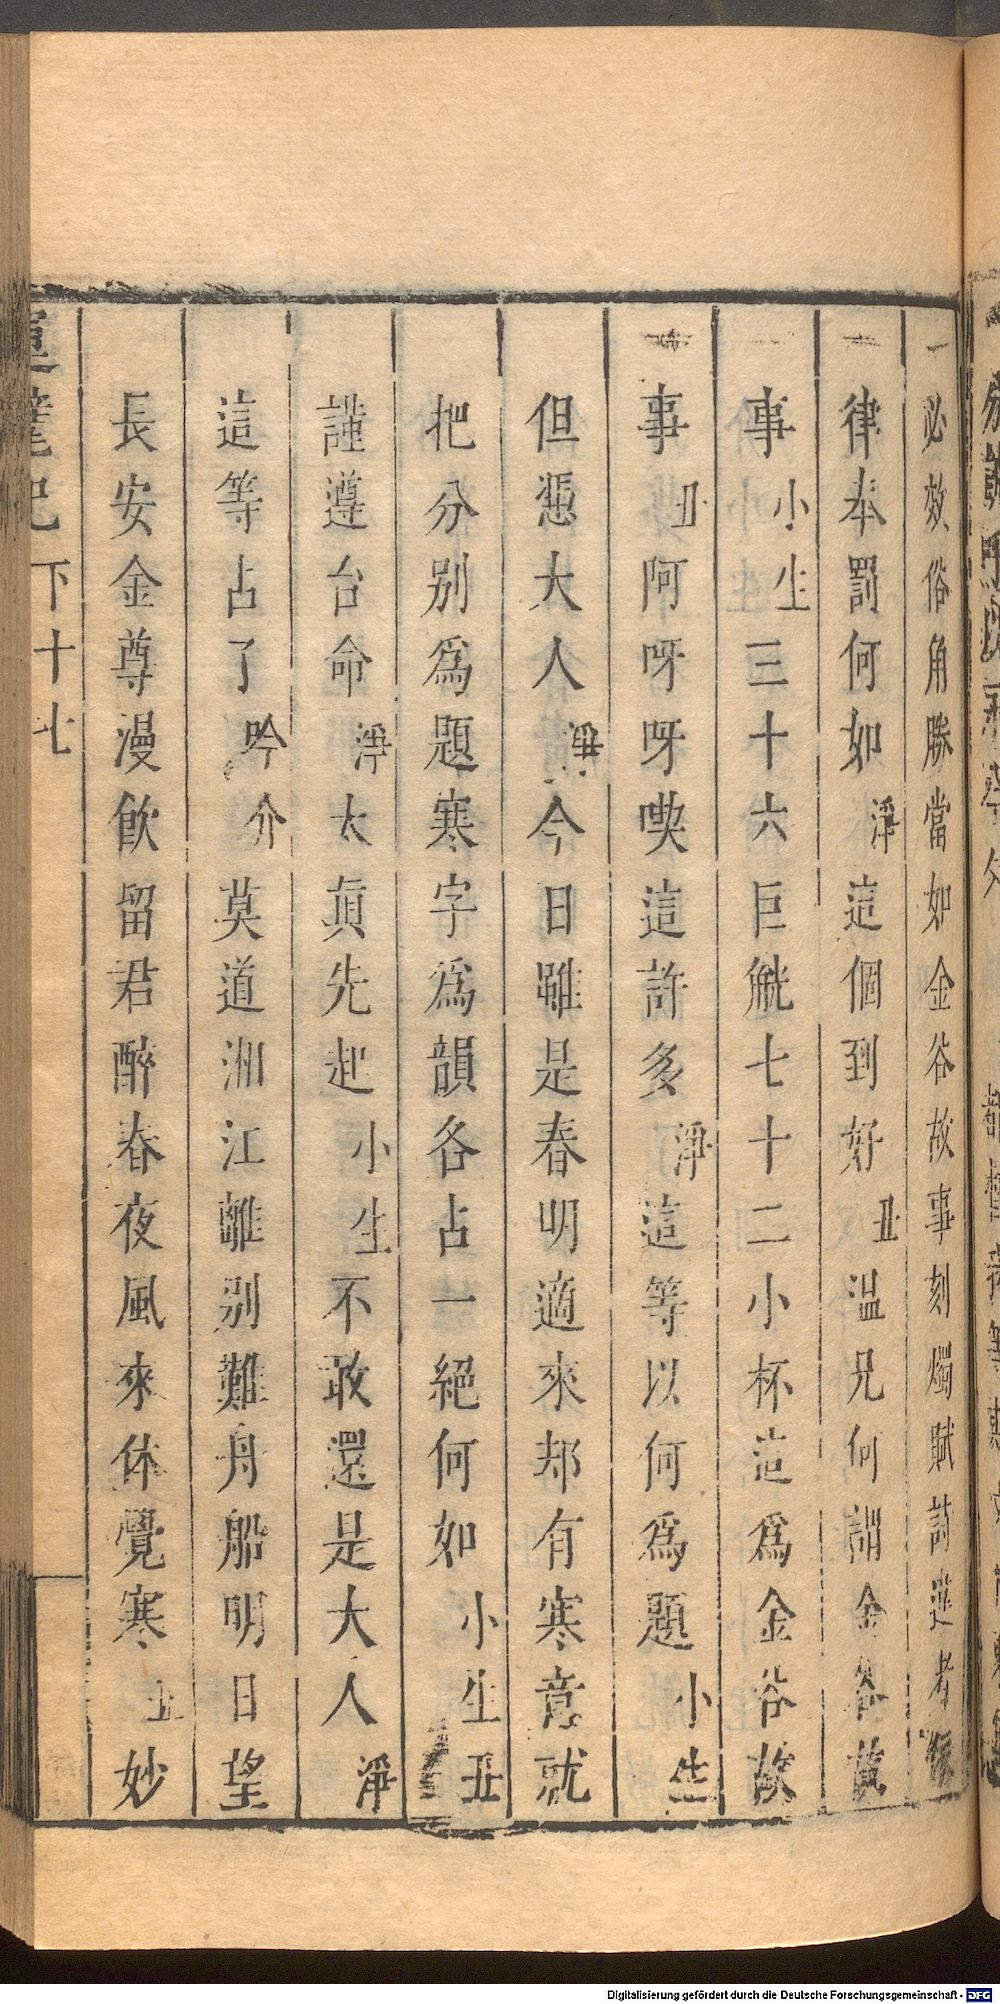 必效俗角勝當如金谷故事刻燭賦詩遲者
律奉罰何如淨這個到好丑溫兄何謂金谷故
事小生三十六巨觥七十二小杯這為金谷故
事丑阿呀呀㗳這許多淨這等以何為題小生
但憑大人淨今日雖是春明適來却有寒竟就
把分別為題寒字為韻各占一絕何如小生丑
謹遵台命淨太眞先起小生不敢還是大人淨
這等占了吟介莫道湘江離别難舟船明日望
長安金尊漫飲留君醉春夜風來休覺寒丑妙
記 下 十七
Digitalisierung gefördert durch die Deutsche Forschungsgemeinschaft - DFG